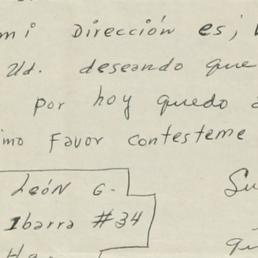 mi Dirección es;
Ud. deseando que
por hoy quedo
imo favor contesteme
León G. Su
Ibarra #34